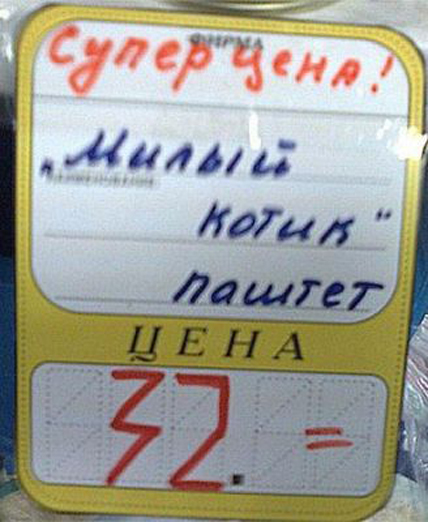 ФИРМА
Супер цена!
„Милый
НАИМЕНОВАНИЕ
котик“
паштет
ЦЕНА
32. =